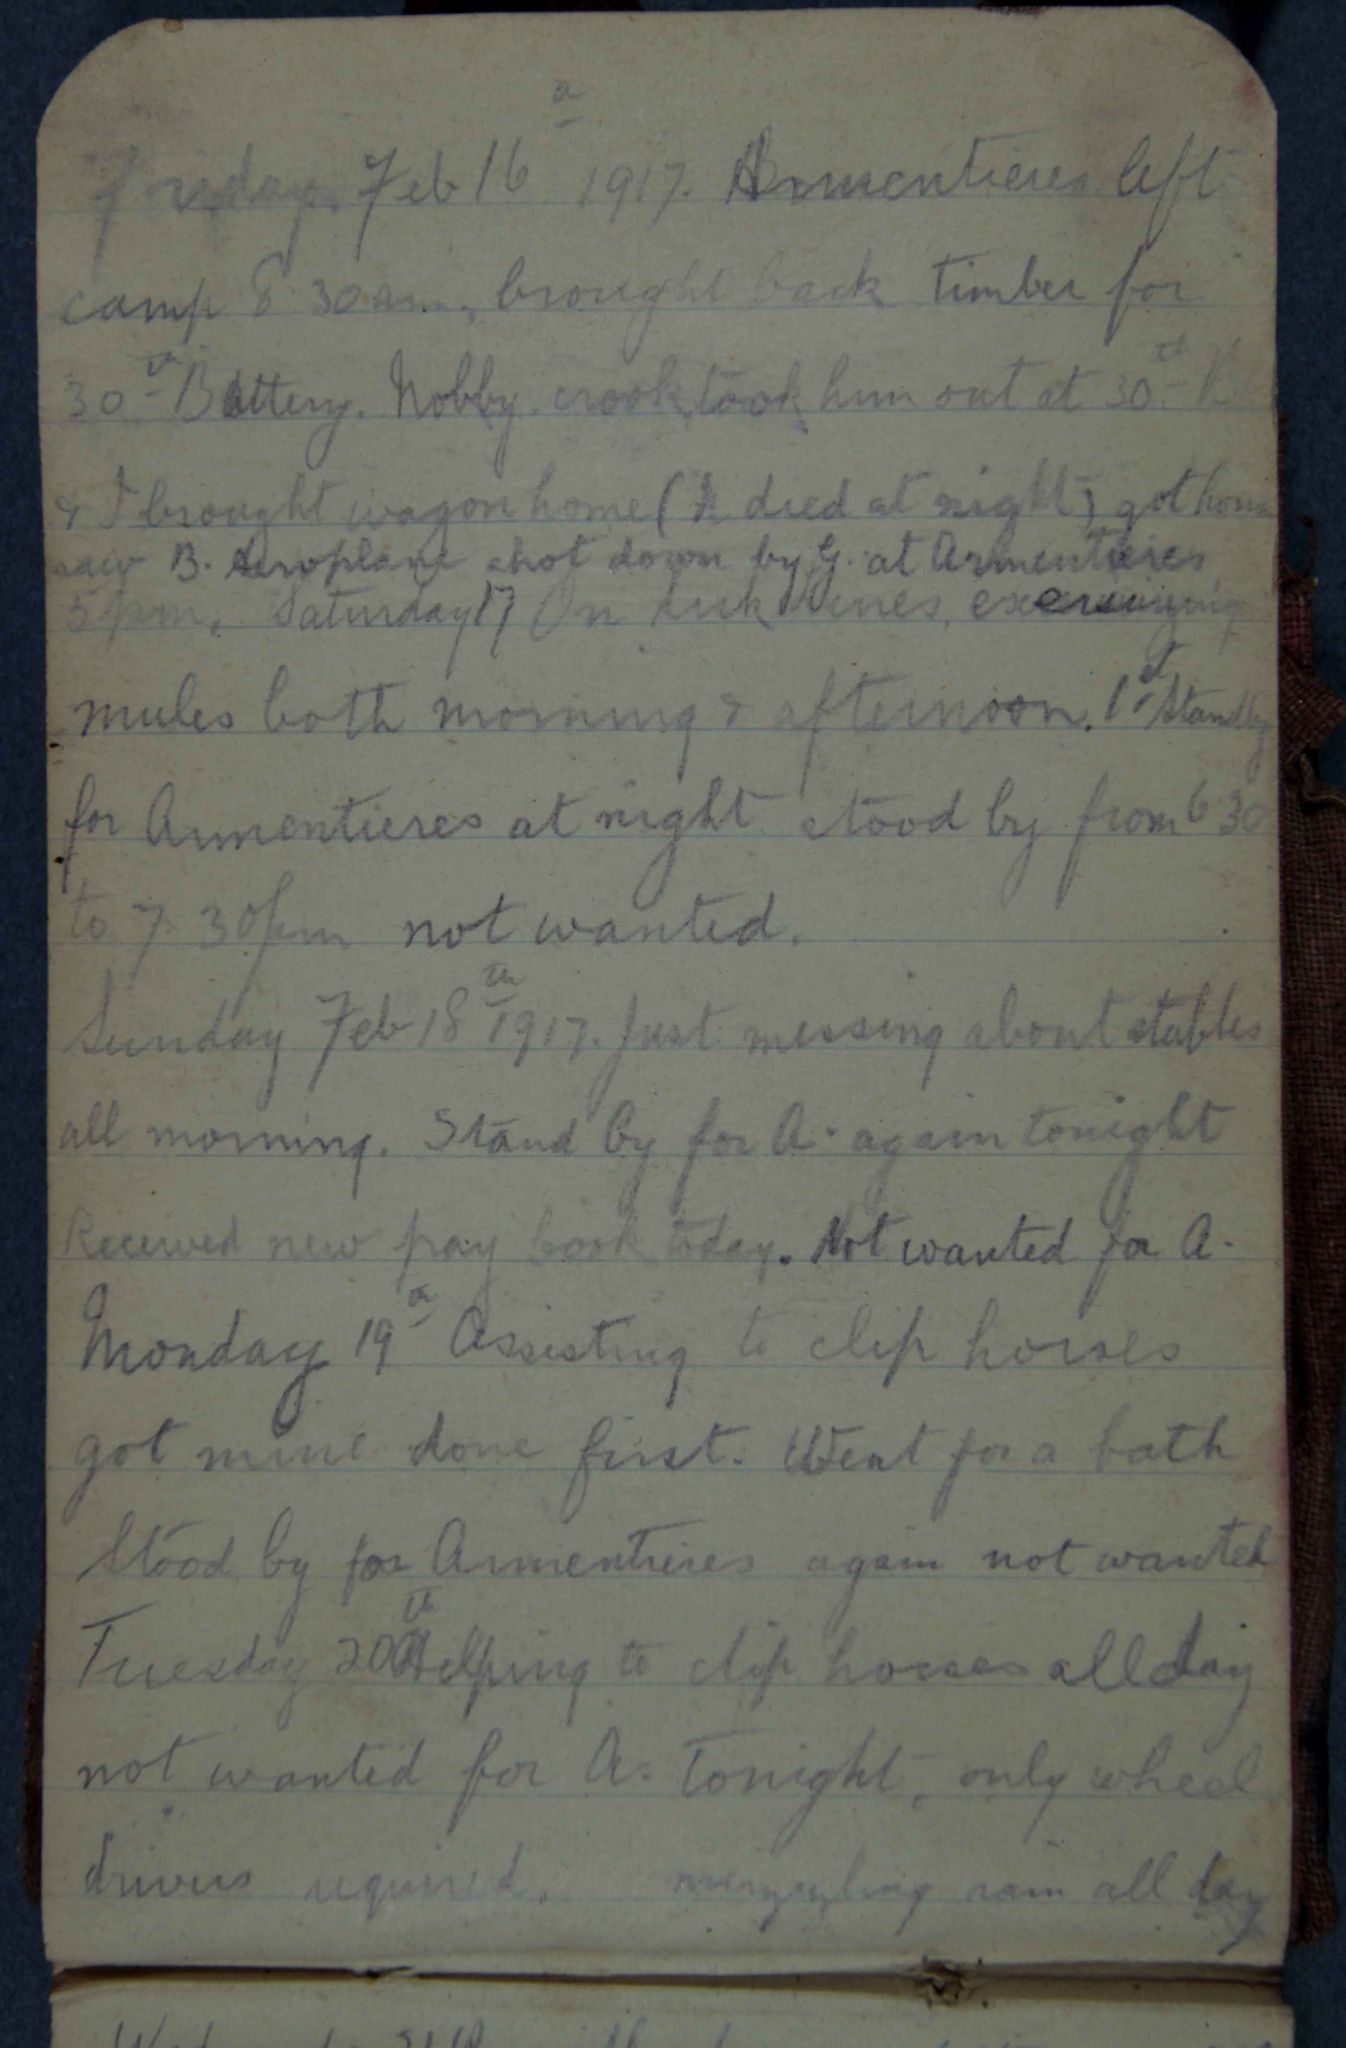 Friday. Feb 16th 1917. Armentieres left
camp 8 30am, brought back timber for
30th Battery. Nobby crook, took him out at 30th
& I brought wagon home (N died at night) got home
saw B. Aeroplane shot down by G. at Armentieres
5pm. Saturday 17 On lines, exercising
mules both morning & afternoon. 1st Standby
for Armentieres at night stood by from 6 30
to 7 30pm not wanted.
Sunday Feb 18th 1917. Just messing about stables
all morning. Stand by for A. again tonight
Received new pay book today. Not wanted for A.
Monday 19th Assisting to clip horses
got mine done first. Went for a bath
Stood by for Armentieres again not wanted
Tuesday 20th Helping to clip horses all day
not wanted for A. Tonight, only wheel
drivers required. rain all day